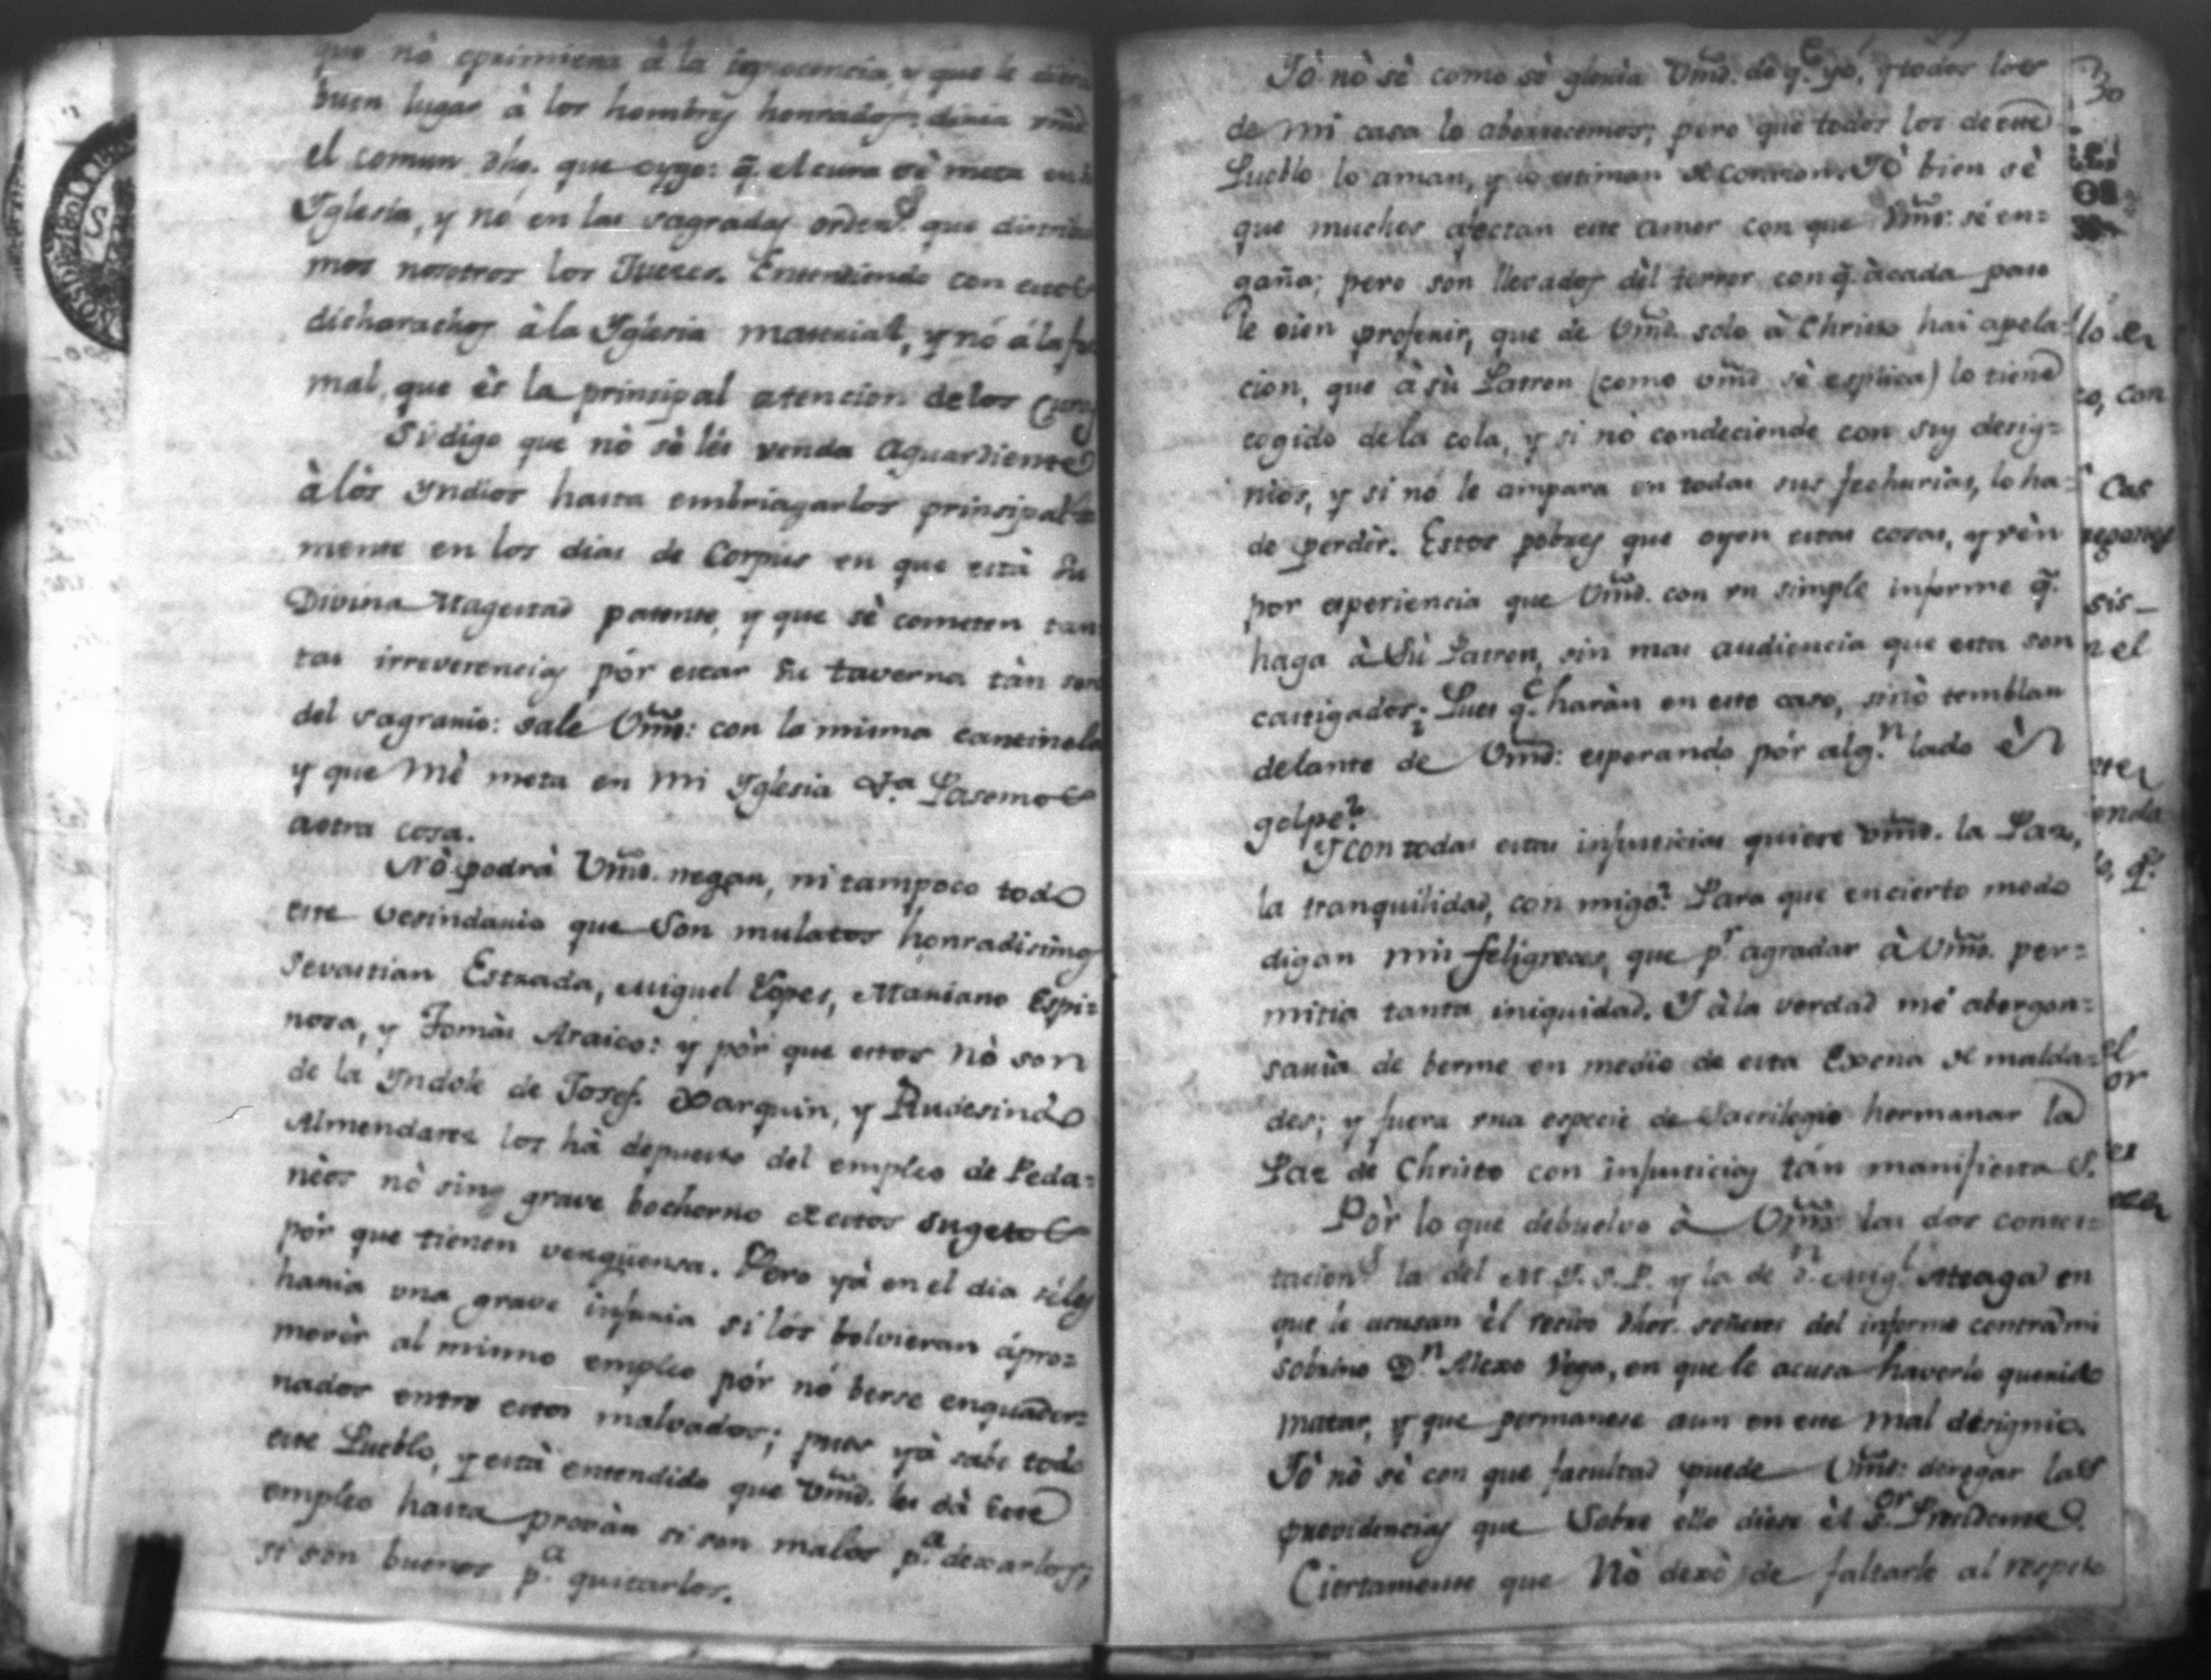 que nò oprimiera à la ignocencia, y que le diera
buen lugar à los hombres honrados: diria vmd
el comun dho. que oygo: q̃. el cura sè meta en la
Iglesia, y no en las sagradas orden.s que distribui
mos nosotros los Jueces. Entendiendo con estos
dicharachos à la Iglesia material, y nó á la for
mal, que ès la prinsipal atencion de los Curas
Si digo que nò sè les venda Aguardiente
à lòs Yndios hasta embriagarlos prinsipal=
mente en los dias de Corpus en que està Su
Divina Magestad patente, y que sè cometen tan
tas irreverencias pór estar su taverna tàn serc
del sagrario: sale Vmd: con la misma cantinela
y que mè meta en mi Iglesia V.a Pasemos
aotra cosa.
Nò podrà Vmd. negar, ni tampoco todo
este vesindario que son mulatos honradisimos
Sevastian Estrada, Miguel Lopes, Mariano Espi=
nosa, y Tomàs Araico: y pòr que estos nò son
de la Yndole de Josef. Xarquin, y Rudesindo
Almendares los hà depuesto del empleo de Peda=
nèos nò sing grave bochorno de estos sugetos
pór que tienen verguensa. Pero yà en el dia sè les
haria una grave injuria si lós bolvieran ápro=
movèr al mismo empleo pór nó berse enquader=
nados entre estos malvados; pues yà sabe todo
este Pueblo, y està entendido que Vmd. les dà este
empleo hasta provàr si son malos p.a dexarlos;
si son buenos p.a quitarlos.
Yò nò sè como sè gloria Vmd. de q.e yo, y todos los
de mi casa lo aborrecemos; pero que todos los de este
Pueblo lo aman, y lo estiman de corazon. Yò bien sè
que muchos afectan este amor con que Vmd: sè en=
gaña; pero son llevados dèl terror con q̃. àcada paso
le oien proferir, que de Vmd. solo à Christo hai apela=
cion, que à sù Patron (como vmd sè esplica) lo tiene
cogido de la cola, y si nò condeciende con sus desig=
nios, y si nó le ampara en todas sus fechurias, lo ha=
de perdèr. Estos pobres que oyen estas cosas, y vèn
por esperiencia que Vmd. con vn simple informe q̃.
haga à Sù Patron, sin mas audiencia que esta son
castigados: Pues q.e haràn en este caso, sinò temblar
delante de Vmd: esperando pór alg.n lado èl
golpe?
Y con todas estas injusticias quiere vmd. la Paz,
la tranquilidad, con migo? Para que en cierto modo
digan mis feligreces, que p.r agradar à Vmd. per=
mitia tanta iniquidad. Y à la verdad mé abergon=
saria de berme en medio de esta Exena de malda=
des; y fuera vna especie de Sacrilegio hermanar la
Paz de Christo con injusticias tán manifiestas.
Pòr lo que debuelvo à Vmd: las dos contes=
tacion.s la del M. Y. S. P. y la de D.n Mig.l Ateaga en
que le acusan èl resivo dhos. señores del informe contra mi
sobrino D.n Alexo Vega, en que le acusa haverlo querido
matar, y que permanese aun en este mal designio.
Yò nò sè con que facultad puede Vmd: derogar las
providencias que sobre ello diese èl S.or Presidente.
Ciertamente que Nò dexò de faltarle al respeto
30
lo er
to, con
Cas
sis_
n el
el
or